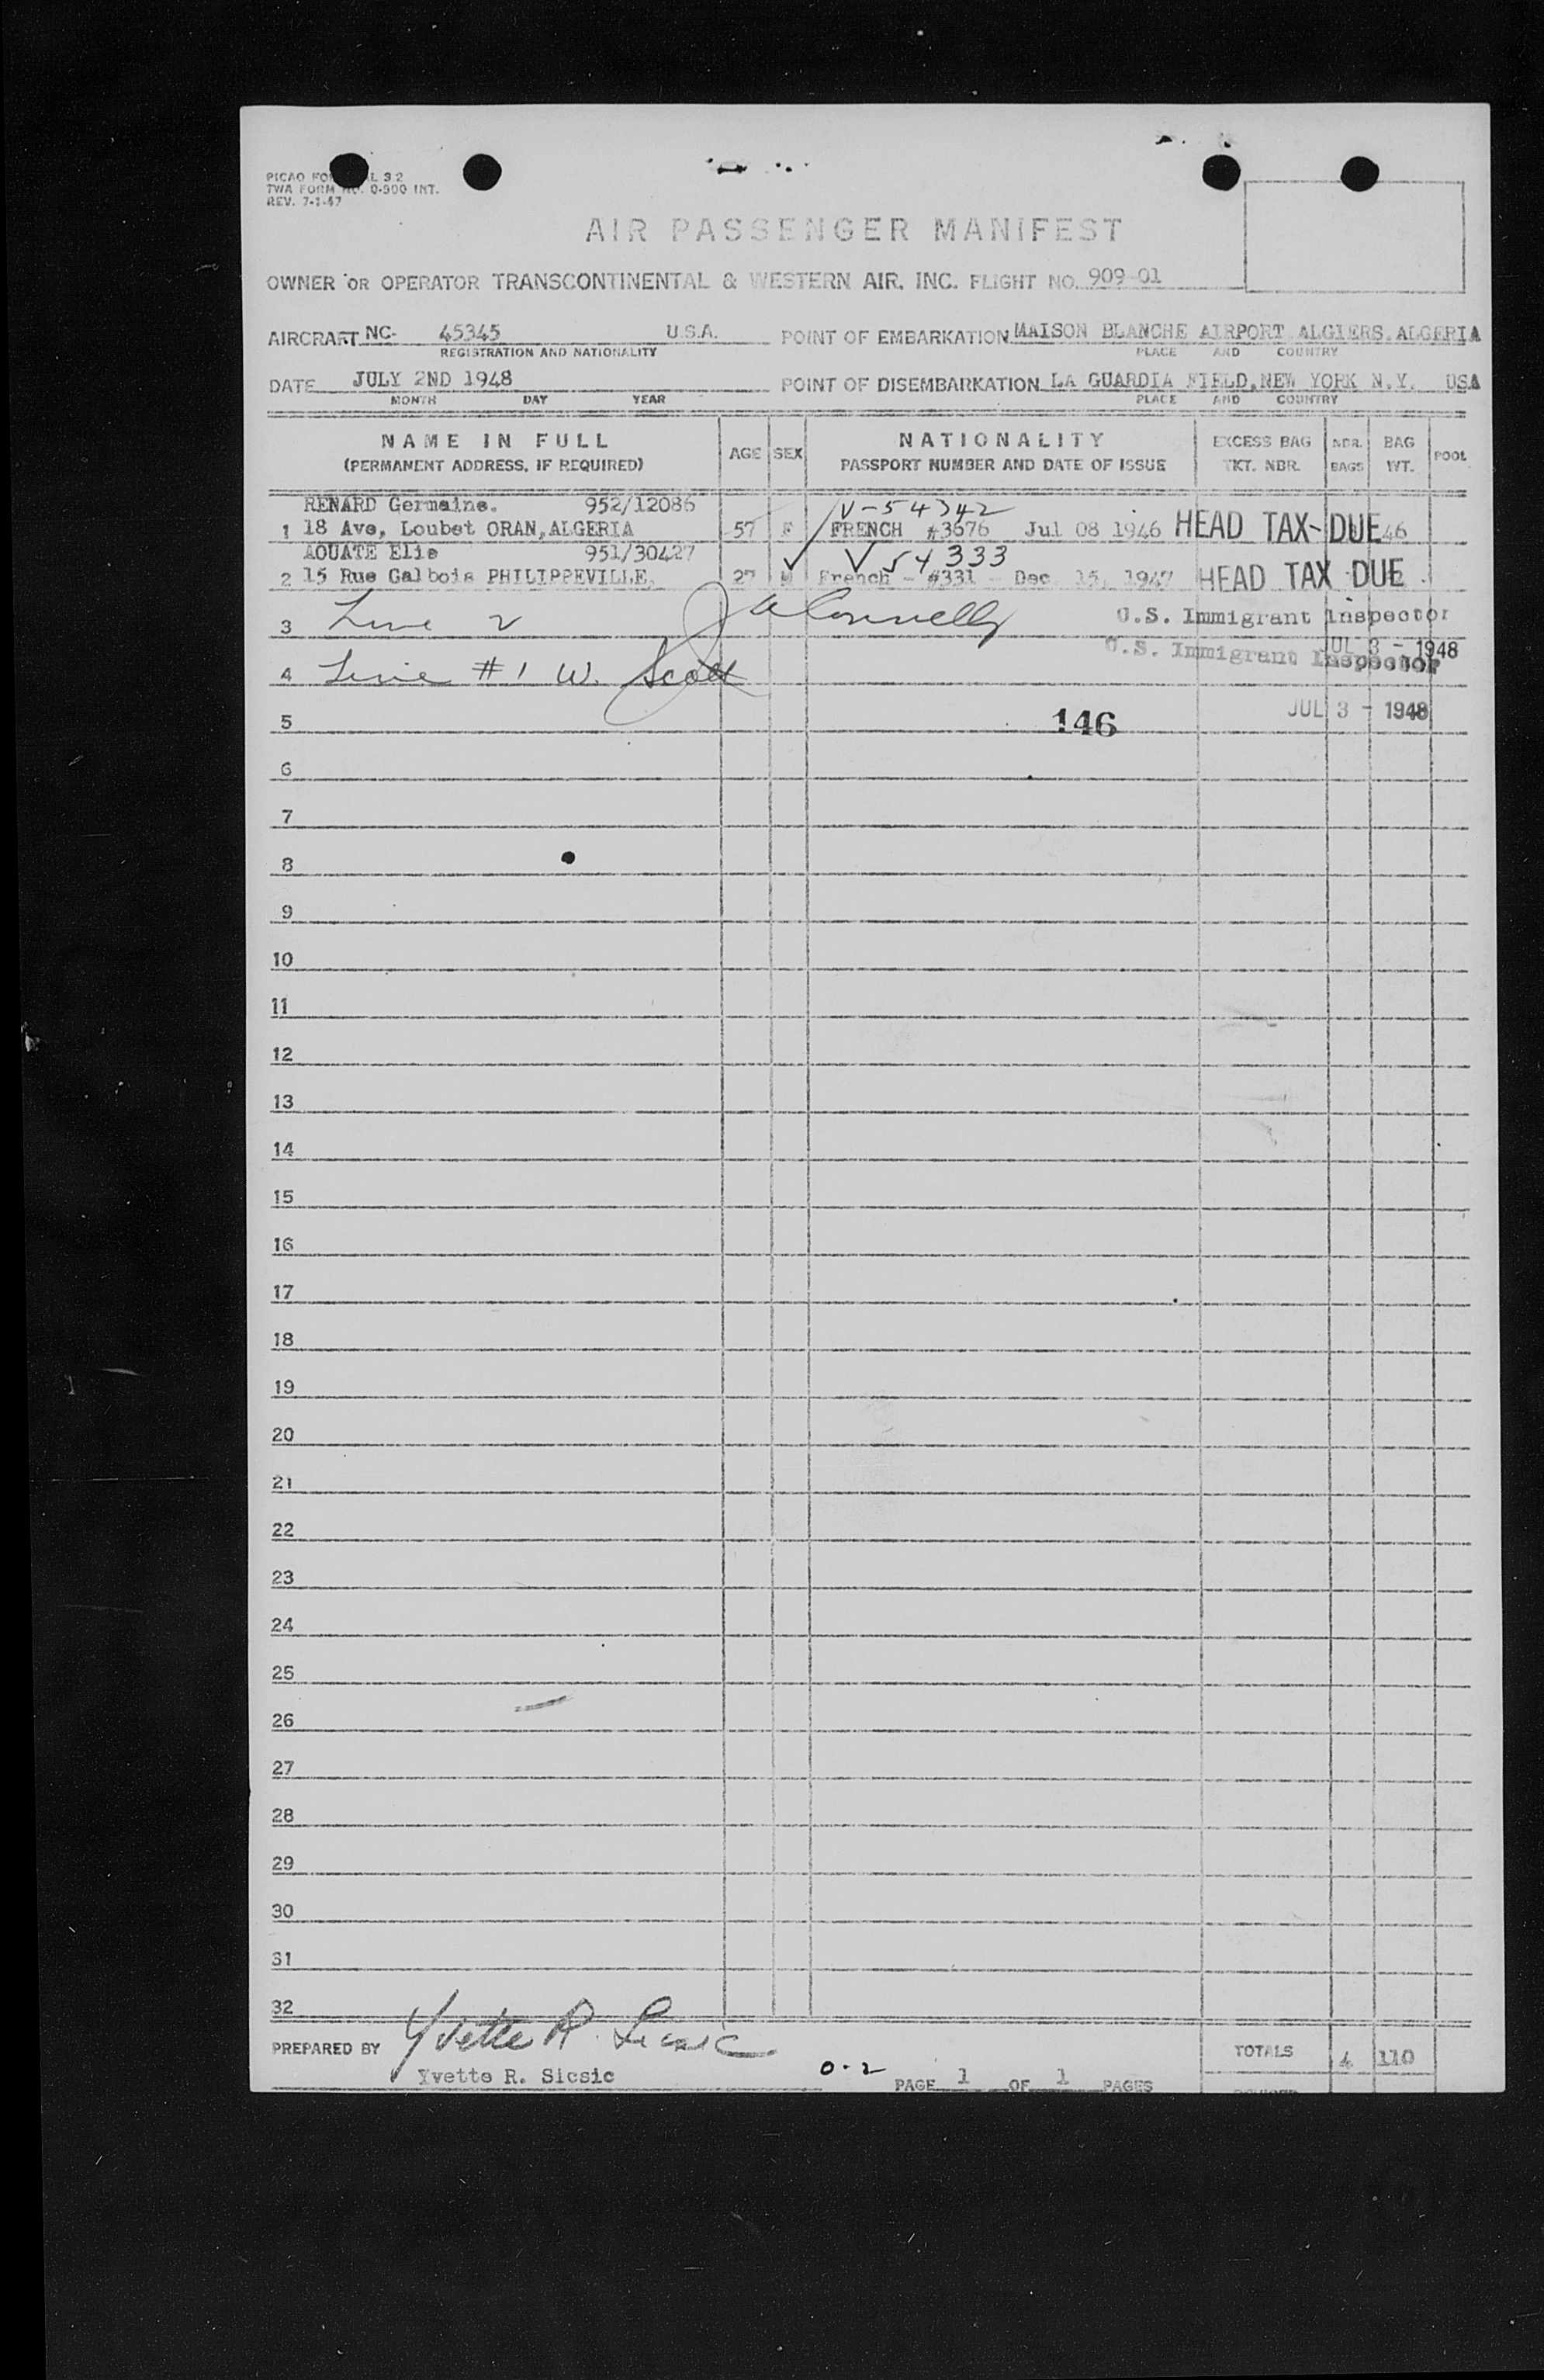 PICAO FO L 3 2
TWA FORM NO. 0-900 INT.
REV. 7-1-47
AIR PASSENGER MANIFEST
OWNER OR OPERATOR TRANSCONTINENTAL & WESTERN AIR, INC. FLIGHT NO. 909-01
AIRCRAFT NC- 45345 U.S.A. POINT OF EMBARKATION MAISON BLANCHE AIRPORT ALGIERS.ALGERIA
REGISTRATION AND NATIONALITY PLACE AND COUNTRY
DATE JULY 2ND 1948 POINT OF DISEMBARKATION LA GUARDIA FIELD,NEW YORK N.Y. USA
MONTH DAY YEAR PLACE AND COUNTRY
NAME IN FULL AGE SEX NATIONALITY EXCESS BAG NBR. BAG POOL
(PERMANENT ADDRESS, IF REQUIRED) PASSPORT NUMBER AND DATE OF ISSUE TKT. NBR. BAGS WT.
RENARD Germaine. 952/12086 V-54342
1 18 Ave, Loubet ORAN,ALGERIA 57 F FRENCH #3676 Jul 08 1946 HEAD TAX-DUE 46
AOUATE Elie 951/30427 V 54333
2 15 Rue Galbois PHILIPPEVILLE, 27 M French - #331 - Dec. 15, 1947 HEAD TAX DUE
3 Line 2 J A Connelly U.S. Immigrant Inspector
JUL 3 - 1948
4 Line #1 W. Scott U.S. Immigrant Inspector
5 146 JUL 3 - 1948
6
7
8
9
10
11
12
13
14
15
16
17
18
19
20
21
22
23
24
25
26
27
28
29
30
31
32
PREPARED BY Yvette R. Sicsic TOTALS 4 110
Yvette R. Sicsic 0-2 PAGE 1 OF 1 PAGES